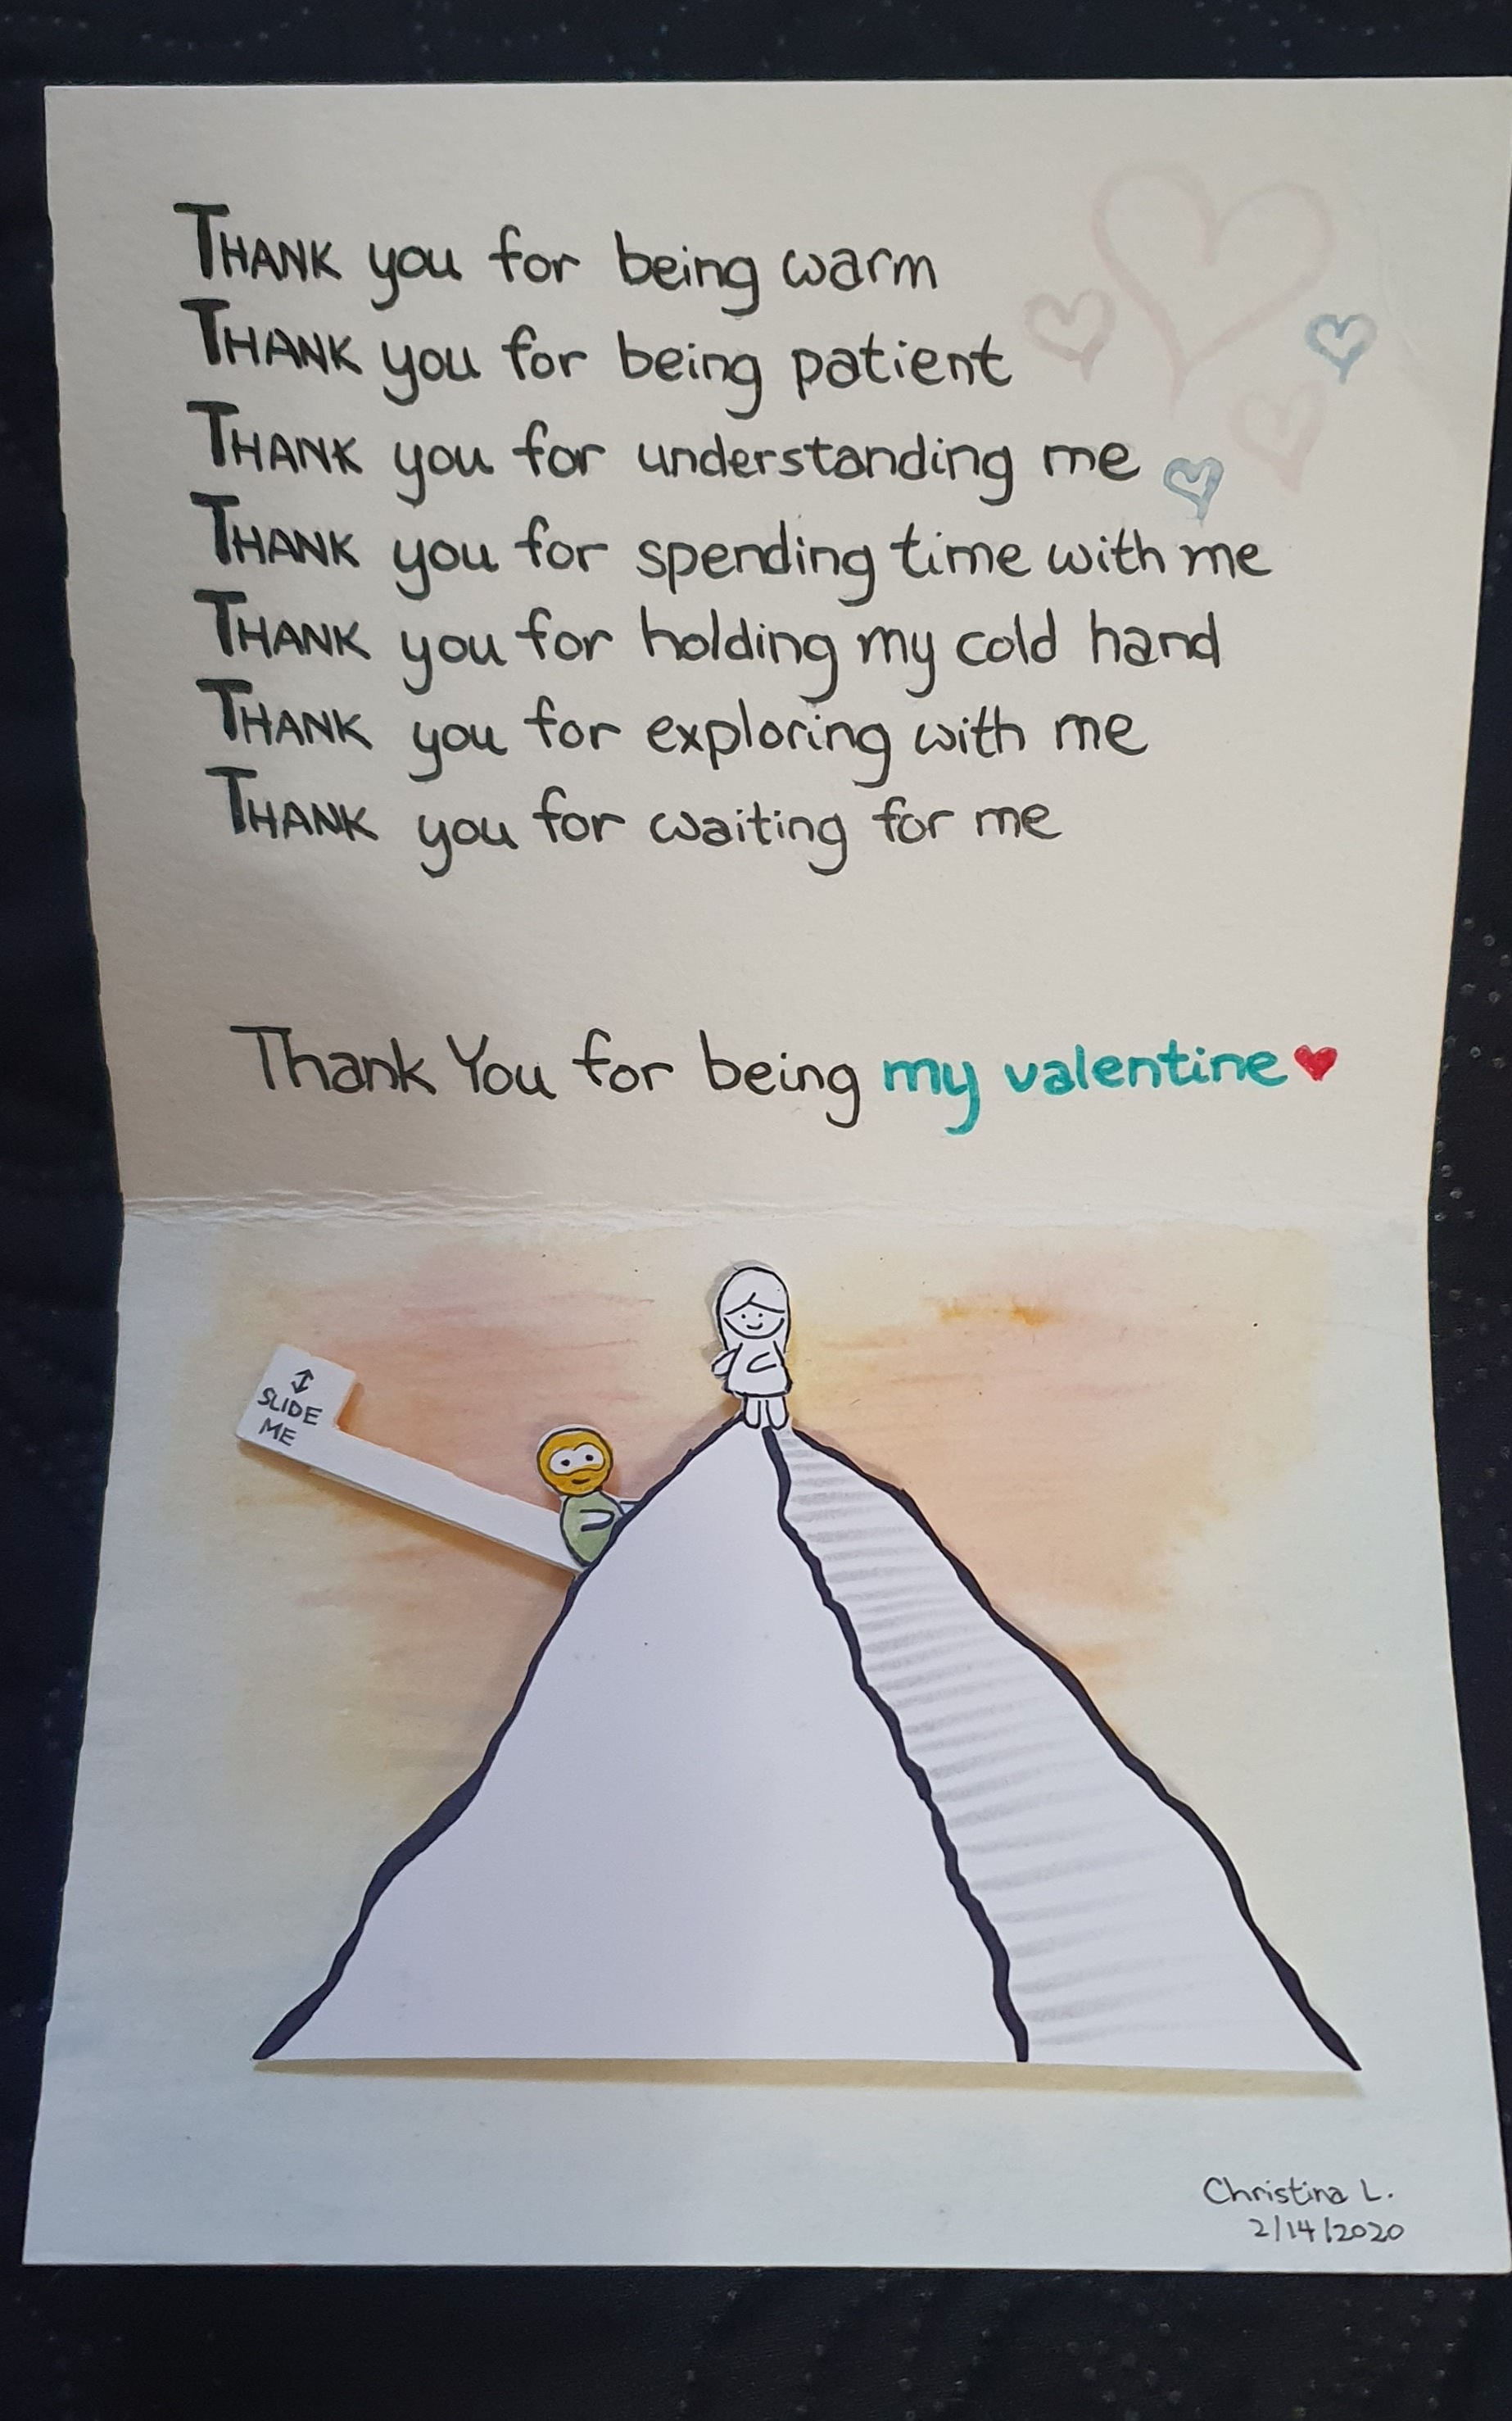 THANK you for being warm
THANK you for being patient
THANK you for understanding me
THANK you for spending time with me
THANK you for holding my cold hand
THANK you for exploring with me
THANK you for waiting for me
Thank You for being my valentine
SLIDE
ME
Christina L.
2/14/2020